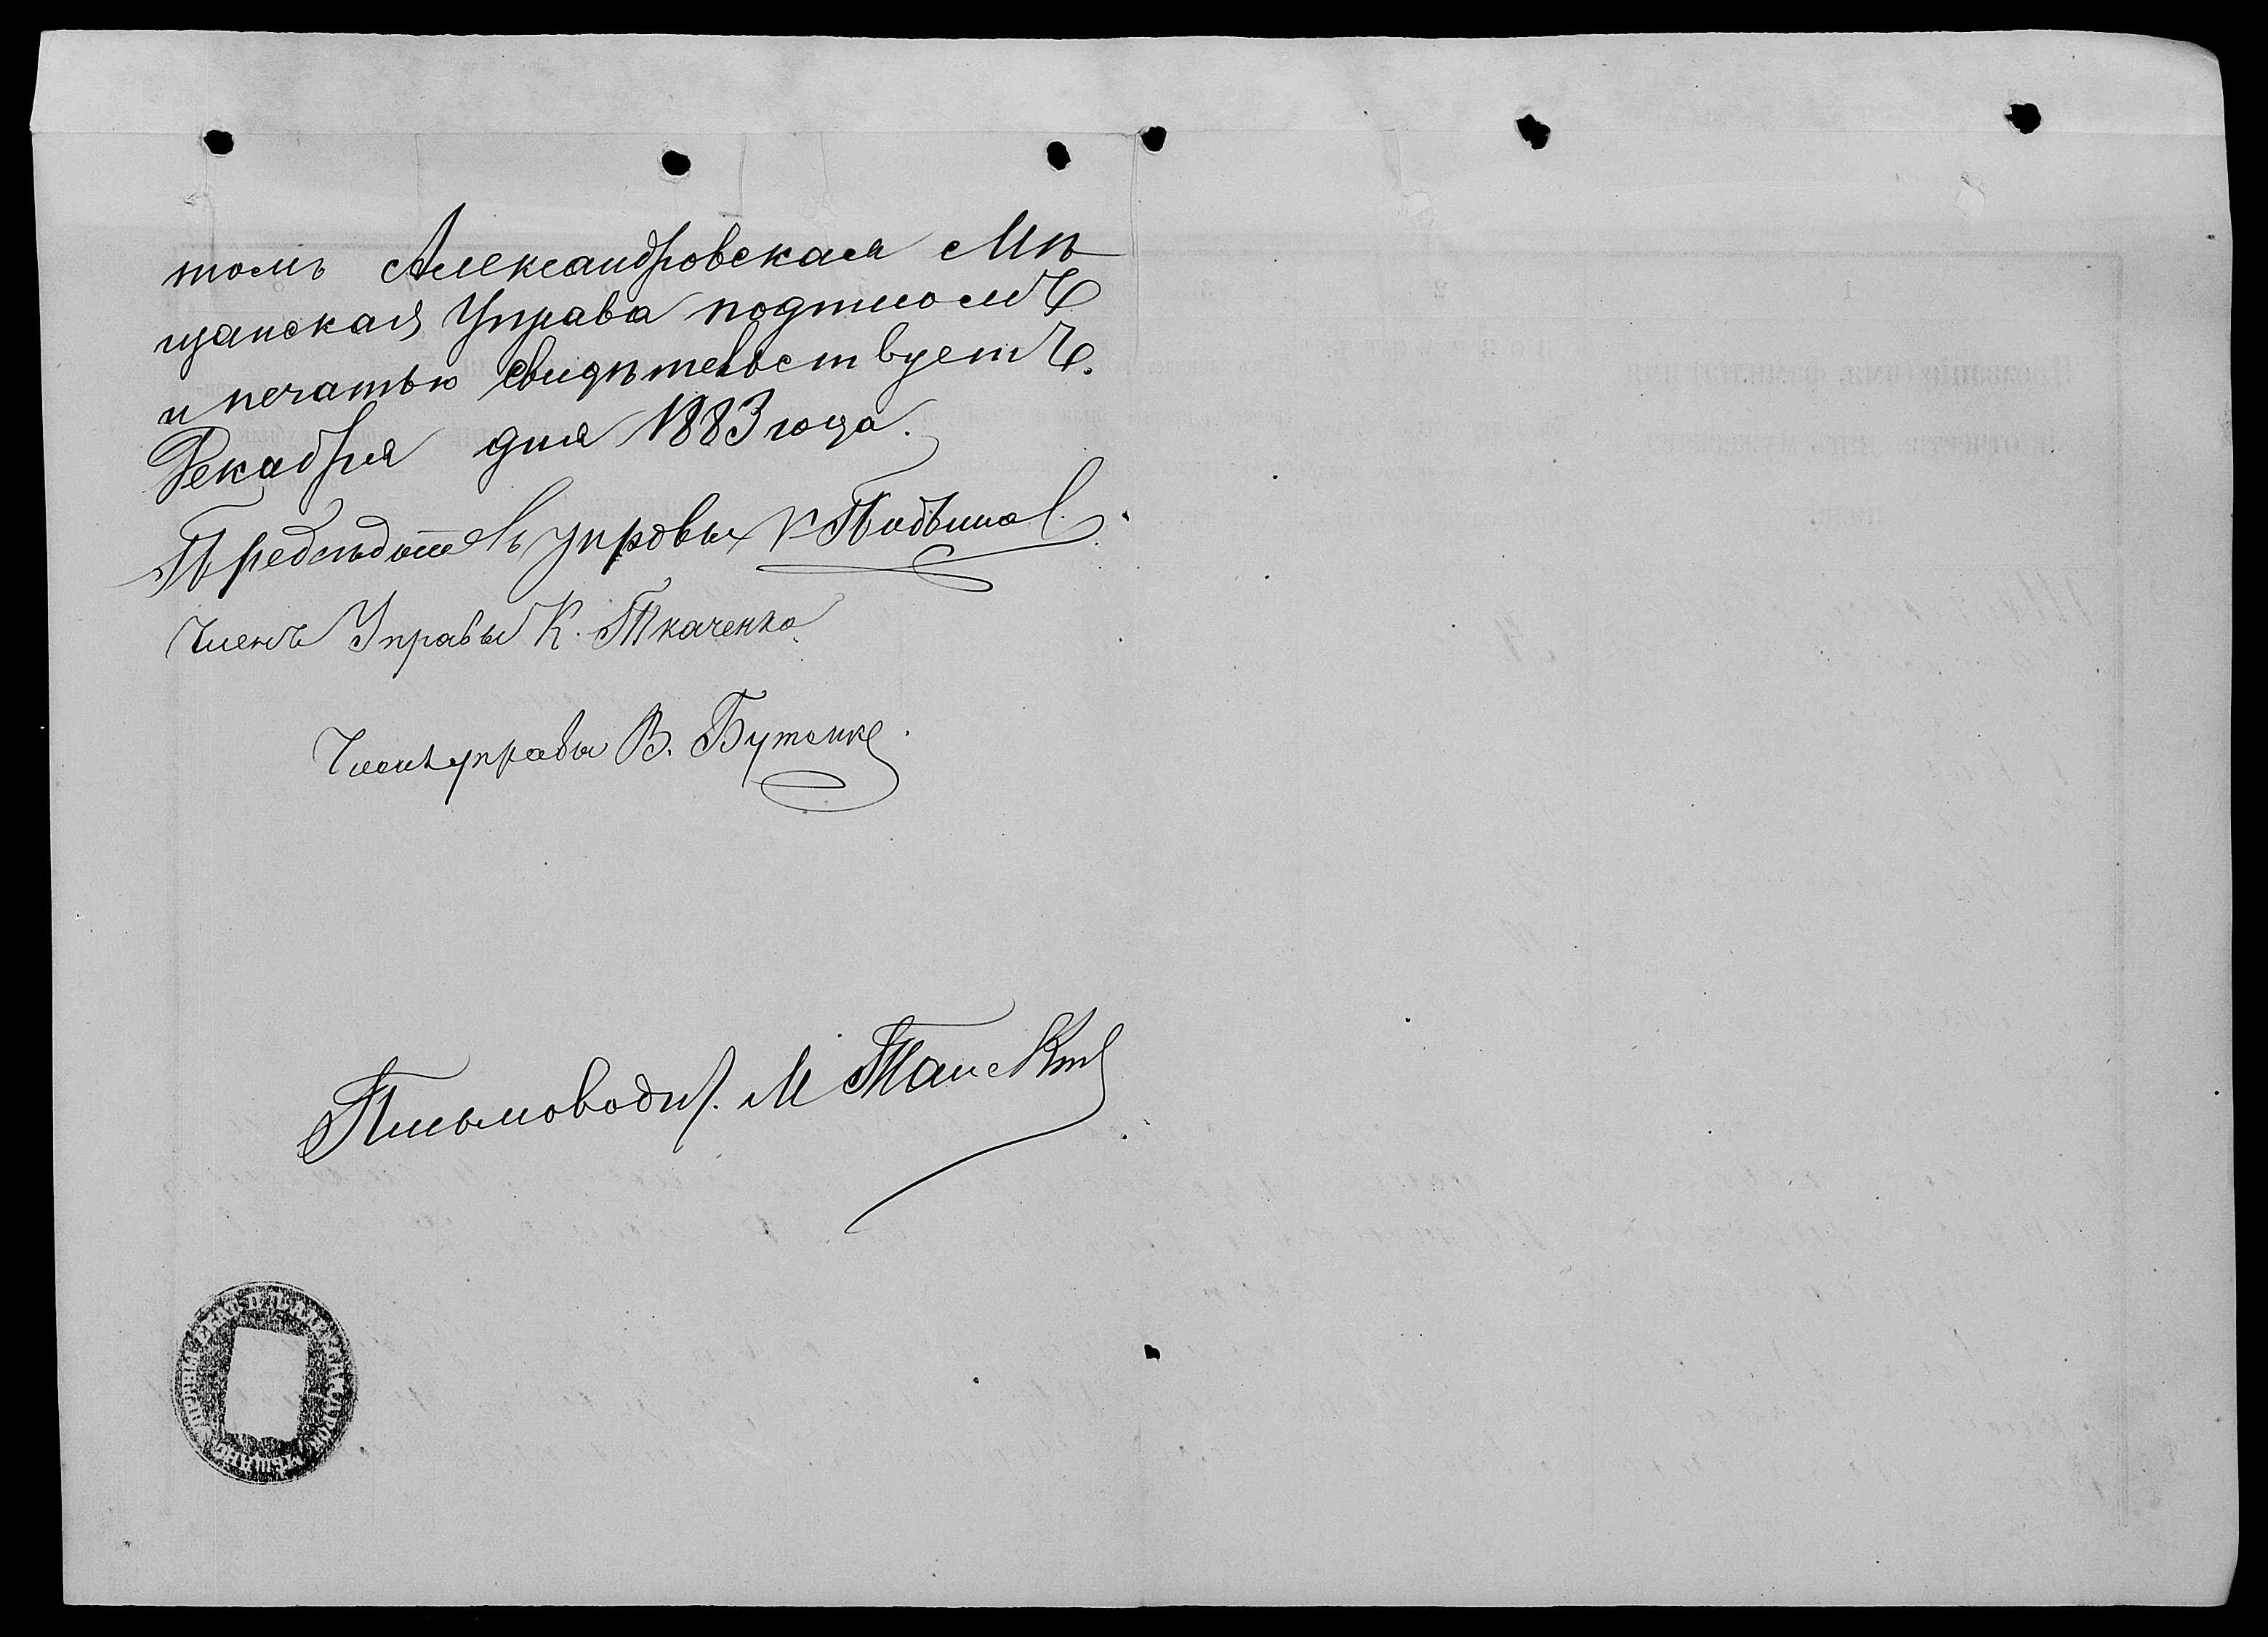 томъ Александровская Мѣ
щанская Управа подписомъ
и печатью свидѣтельствуетъ.
Декабря дня 1883 года.
Предсѣдатель управы
Членъ Управы К. Ткаченко
Членъ управы В. Бутенко.
Письмоводит. М